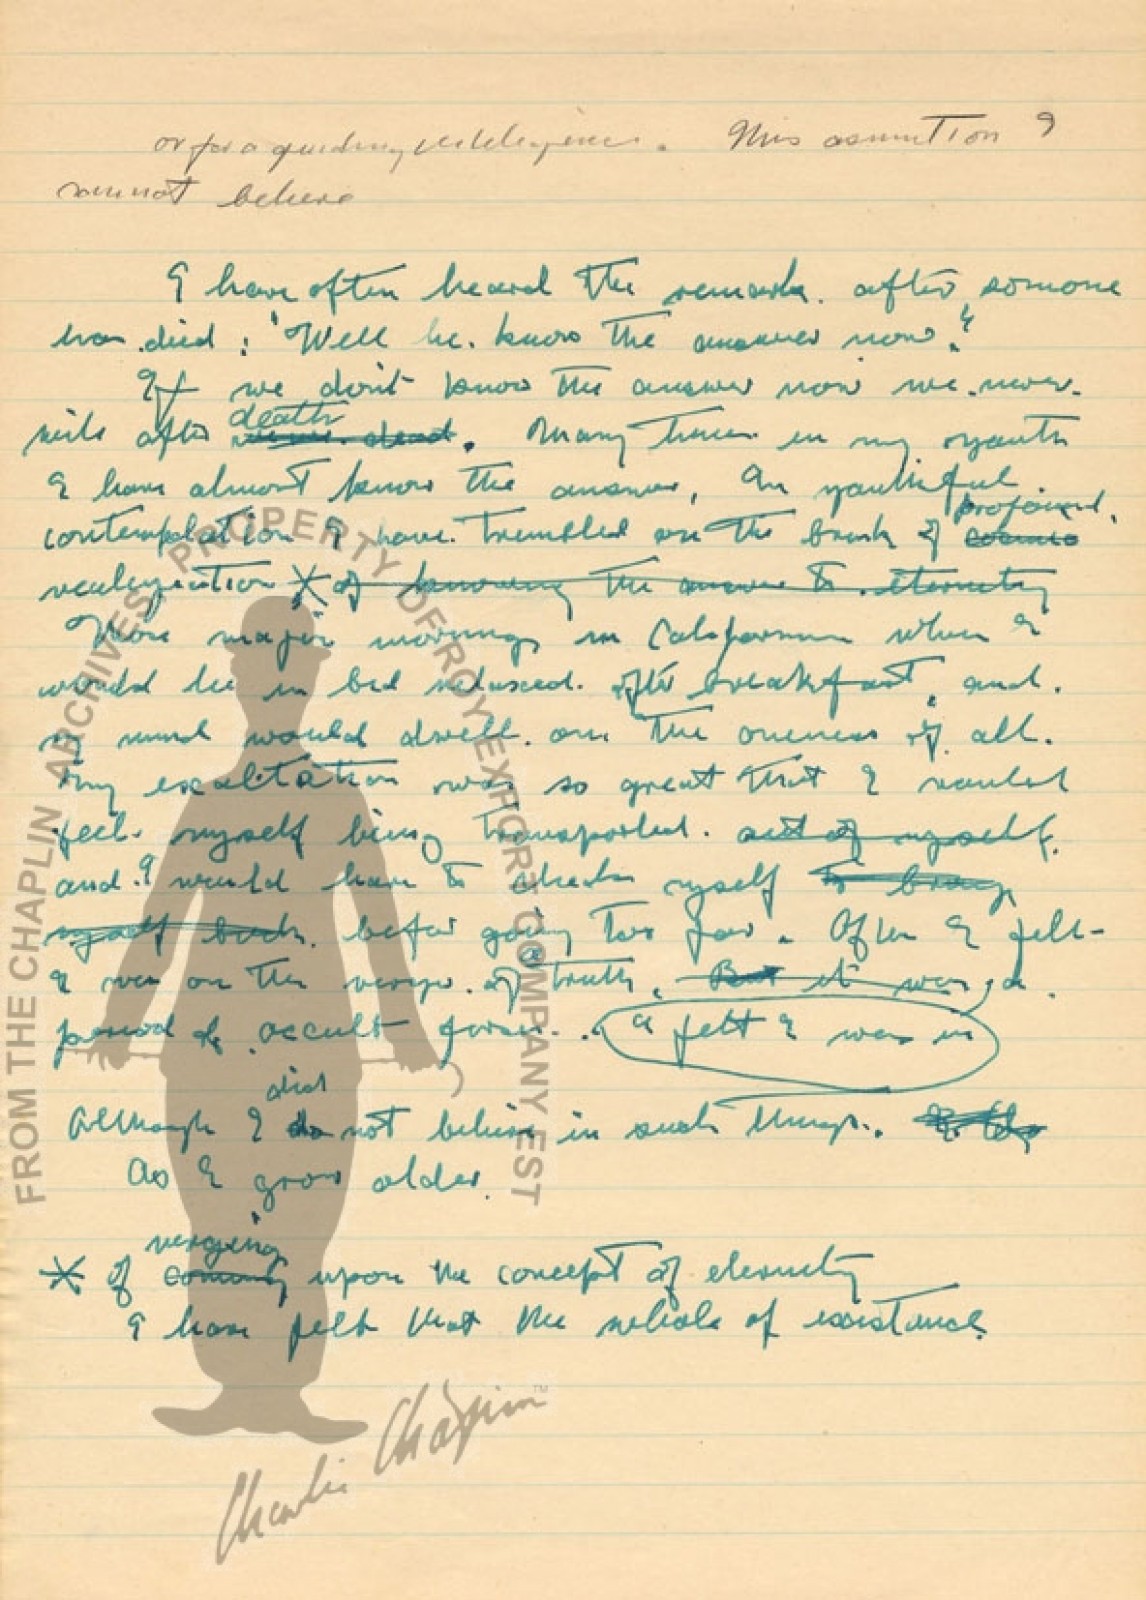 or for a guiding intelligence. This assumtion I
cannot believe
I have often heard the remark. after someone
has died: "Well he. knows the answer now".
If we don't know the answer now we never.
will after death we are dead. Many times in my youth
I have almost know the answer, In youthful
contemplation I have trembled on the brink of cosmic profound,
realization * of knowing the answer to eternity
mornings in California when I
would lie in bed relaxed. after breakfast, and.
my mind would dwell. on the oneness of all.
My exaltation was so great that I would
feel myself being transported. out of myself.
and I would have to check myself to bring
myself back. befor going too far. Often I felt
I was on the verge. of a truth. But it was a
period of occult
I felt I was in
did
Although I do not believe in such things.
As I grow older.
verging
* of coming upon the concept of eternity
I have felt that the whole of existance
FROM THE CHAPLIN ARCHIVES PROPERTY OF ROY EXPORT COMPANY EST
Charlie Chaplin™